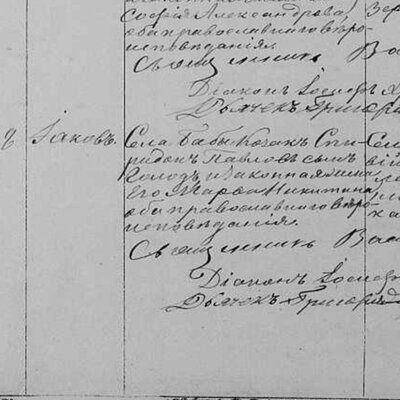 Софія Александрова,
оба православнаго веро-
исповеданія.
Священникъ
Діаконъ Іосифъ
Дьячекъ Григорій
Іаковъ.
Села Бабы Козакъ Спи-
ридонъ Павловъ сынъ
Колодъ и законная жена
Его Марѳа Никитина
оба православнаго веро-
исповеданія.
Священникъ
Діаконъ Іосифъ
Дьячекъ Григорій